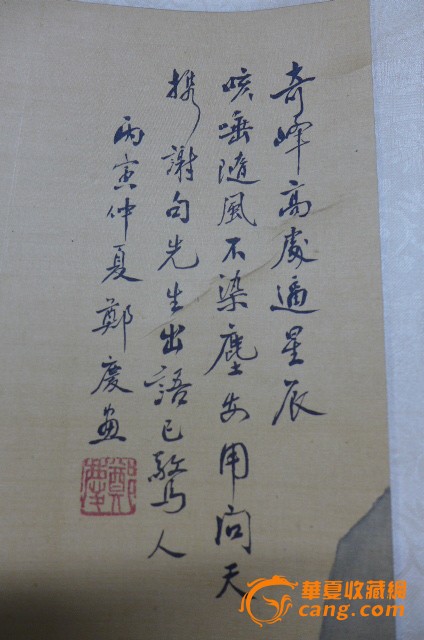 奇峰高處逼星辰
咳唾隨風不染塵安用问天
携謝句先生出語已驚人
丙寅仲夏鄭慶畫
鄭慶
華夏收藏網
cang.com